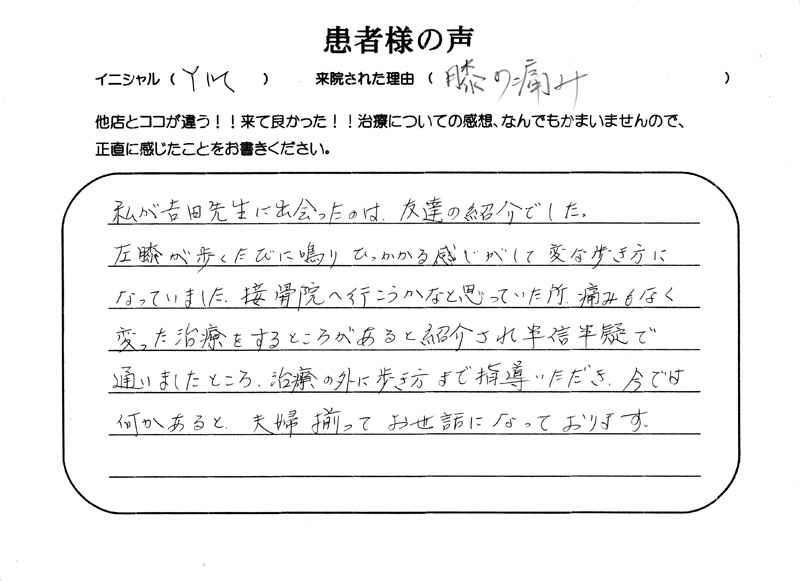 患者様の声
イニシャル（ Y.M ） 来院された理由（ 膝の痛み ）
他店とココが違う！！来て良かった！！治療についての感想、なんでもかまいませんので、
正直に感じたことをお書きください。
私が吉田先生に出会ったのは、友達の紹介でした。
左膝が歩くたびに鳴りひっかかる感じがして変な歩き方に
なっていました。接骨院へ行こうかなと思っていた所、痛みもなく
変った治療をするところがあると紹介され半信半疑で
通いましたところ、治療の外に歩き方まで指導いただき、今では
何かあると、夫婦揃ってお世話になっております。